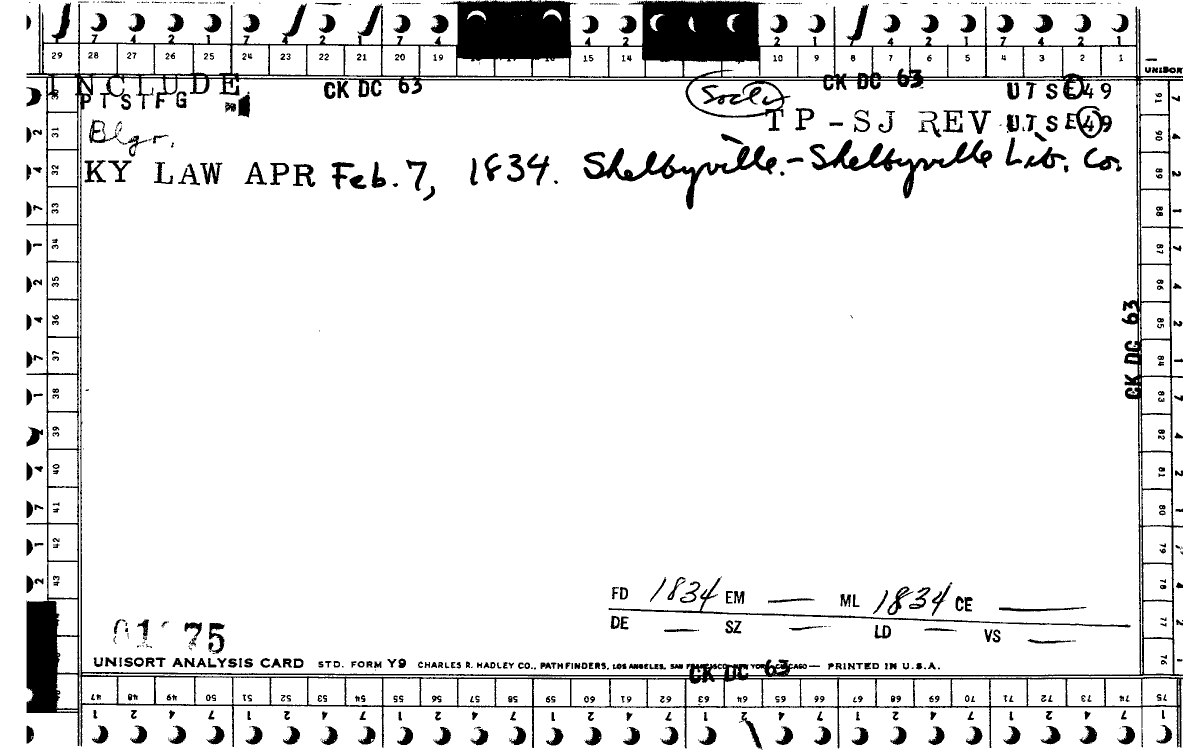 7 4 2 1 7 4 2 1 7 4 4 2 2 1 7 4 2 1 7 4 2 1
29 28 27 26 25 24 23 22 21 20 19 18 15 14 13 10 9 8 7 6 5 4 3 2 1
UNISORT
INCLUDE CK DC 63 Socly CK DC 63 UTSE49
PTSTFG TP-SJ REV UTSE49
Blgr.
KY LAW APR Feb. 7, 1834. Shelbyville.-Shelbyville Lib. Co.
31
32
33
34
35
36
37
38
39
40
41
42
43
91
90
89
88
87
86
85
84
83
82
81
80
79
78
77
76
CK DC 63
FD 1834 EM — ML 1834 CE —
DE — SZ — LD — VS —
75
UNISORT ANALYSIS CARD STD. FORM Y9 CHARLES R. HADLEY CO., PATHFINDERS, LOS ANGELES, SAN FRANCISCO, NEW YORK, CHICAGO — PRINTED IN U.S.A.
CK DC 63
47 48 49 50 51 52 53 54 55 56 57 58 59 60 61 62 63 64 65 66 67 68 69 70 71 72 73 74 75
1 2 4 7 1 2 4 7 1 2 4 7 1 2 4 7 1 2 4 7 1 2 4 7 1 2 4 7 1